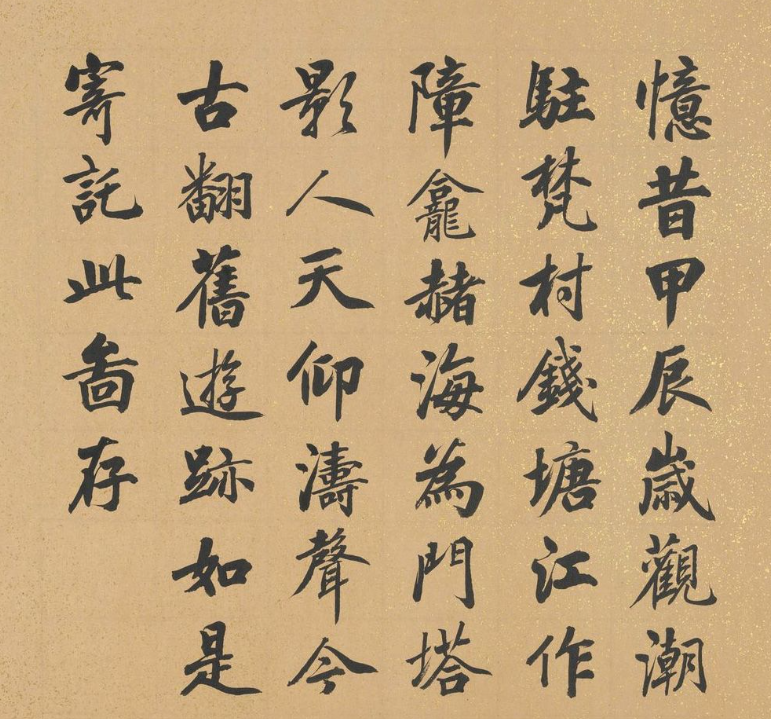 憶昔甲辰歲觀潮
駐梵村錢塘江作
障龕赭海為門塔
影人天仰濤聲今
古翻舊遊跡如是
寄託此啚存